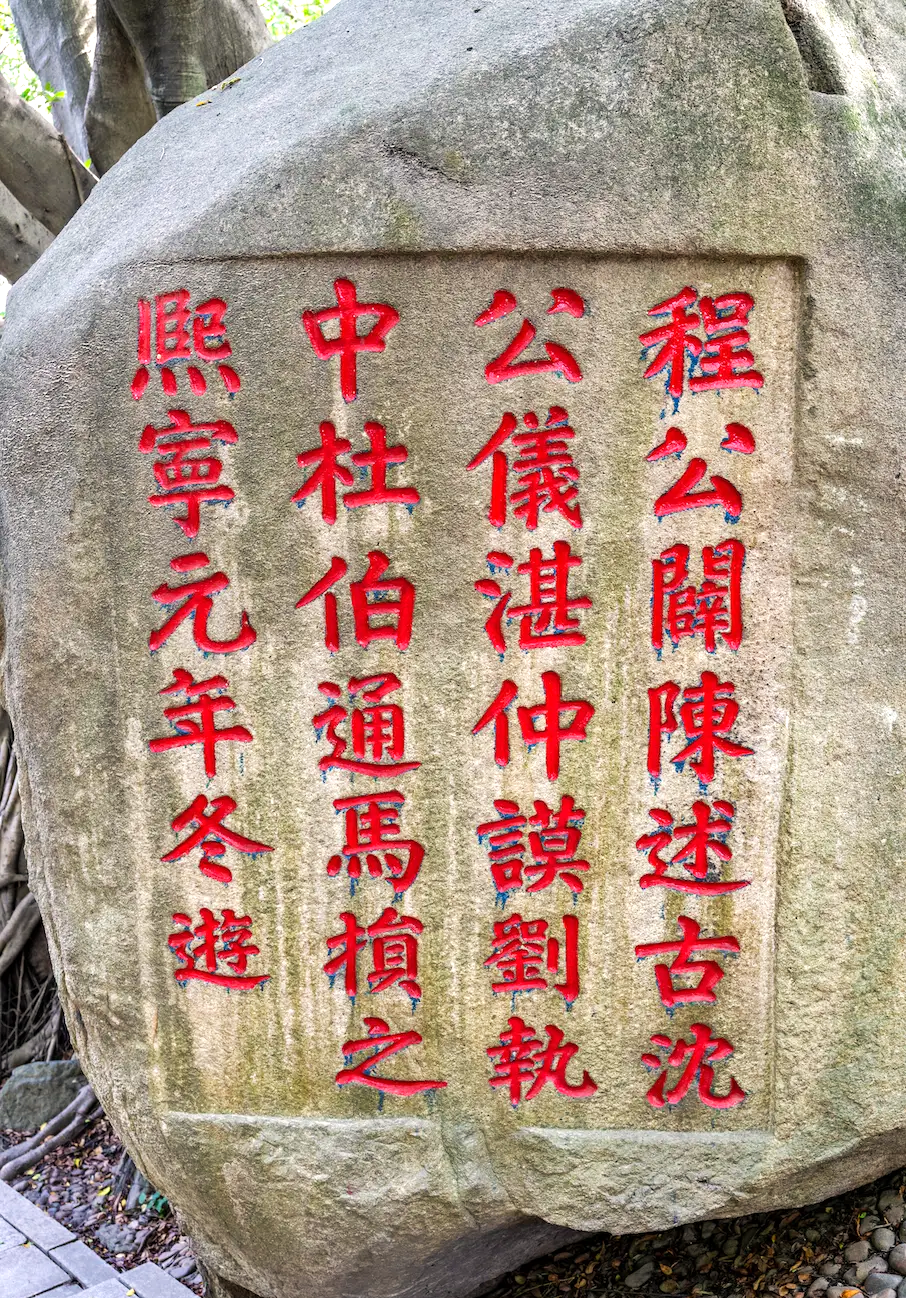 程公闢陳述古沈
公儀湛仲謨劉執
中杜伯通馬損之
熈寧元年冬遊